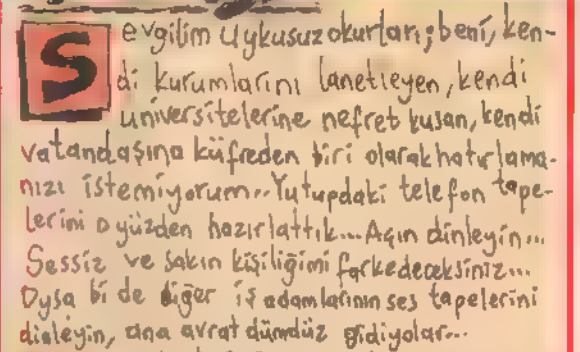 Sevgilim Uykusuz okurları; beni, ken-
di kurumlarını lanetleyen, kendi
üniversitelerine nefret kusan, kendi
vatandaşına küfreden biri olarak hatırlama-
nızı istemiyorum.. Yutupdaki telefon tape-
lerini o yüzden hazırlattık... Açın dinleyin...
Sessiz ve sakin kişiliğimi farkedeceksiniz...
Oysa bi de diğer iş adamlarının ses tapelerini
dinleyin, ana avrat dümdüz gidiyolar...